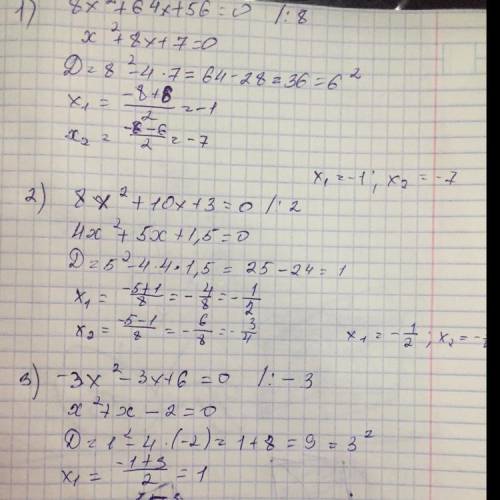 1) 8x²+64x+56=0 /:8
x²+8x+7=0
D=8²-4·7=64-28=36=6²
x₁=(-8+6)/2=-1
x₂=(-8-6)/2=-7
x₁=-1; x₂=-7
2) 8x²+10x+3=0 /:2
4x²+5x+1,5=0
D=5²-4·4·1,5=25-24=1
x₁=(-5+1)/8=-4/8=-1/2
x₂=(-5-1)/8=-6/8=-3/4
x₁=-1/2; x₂=-
3) -3x²-3x+6=0 /:-3
x²+x-2=0
D=1²-4·(-2)=1+8=9=3²
x₁=(-1+3)/2=1